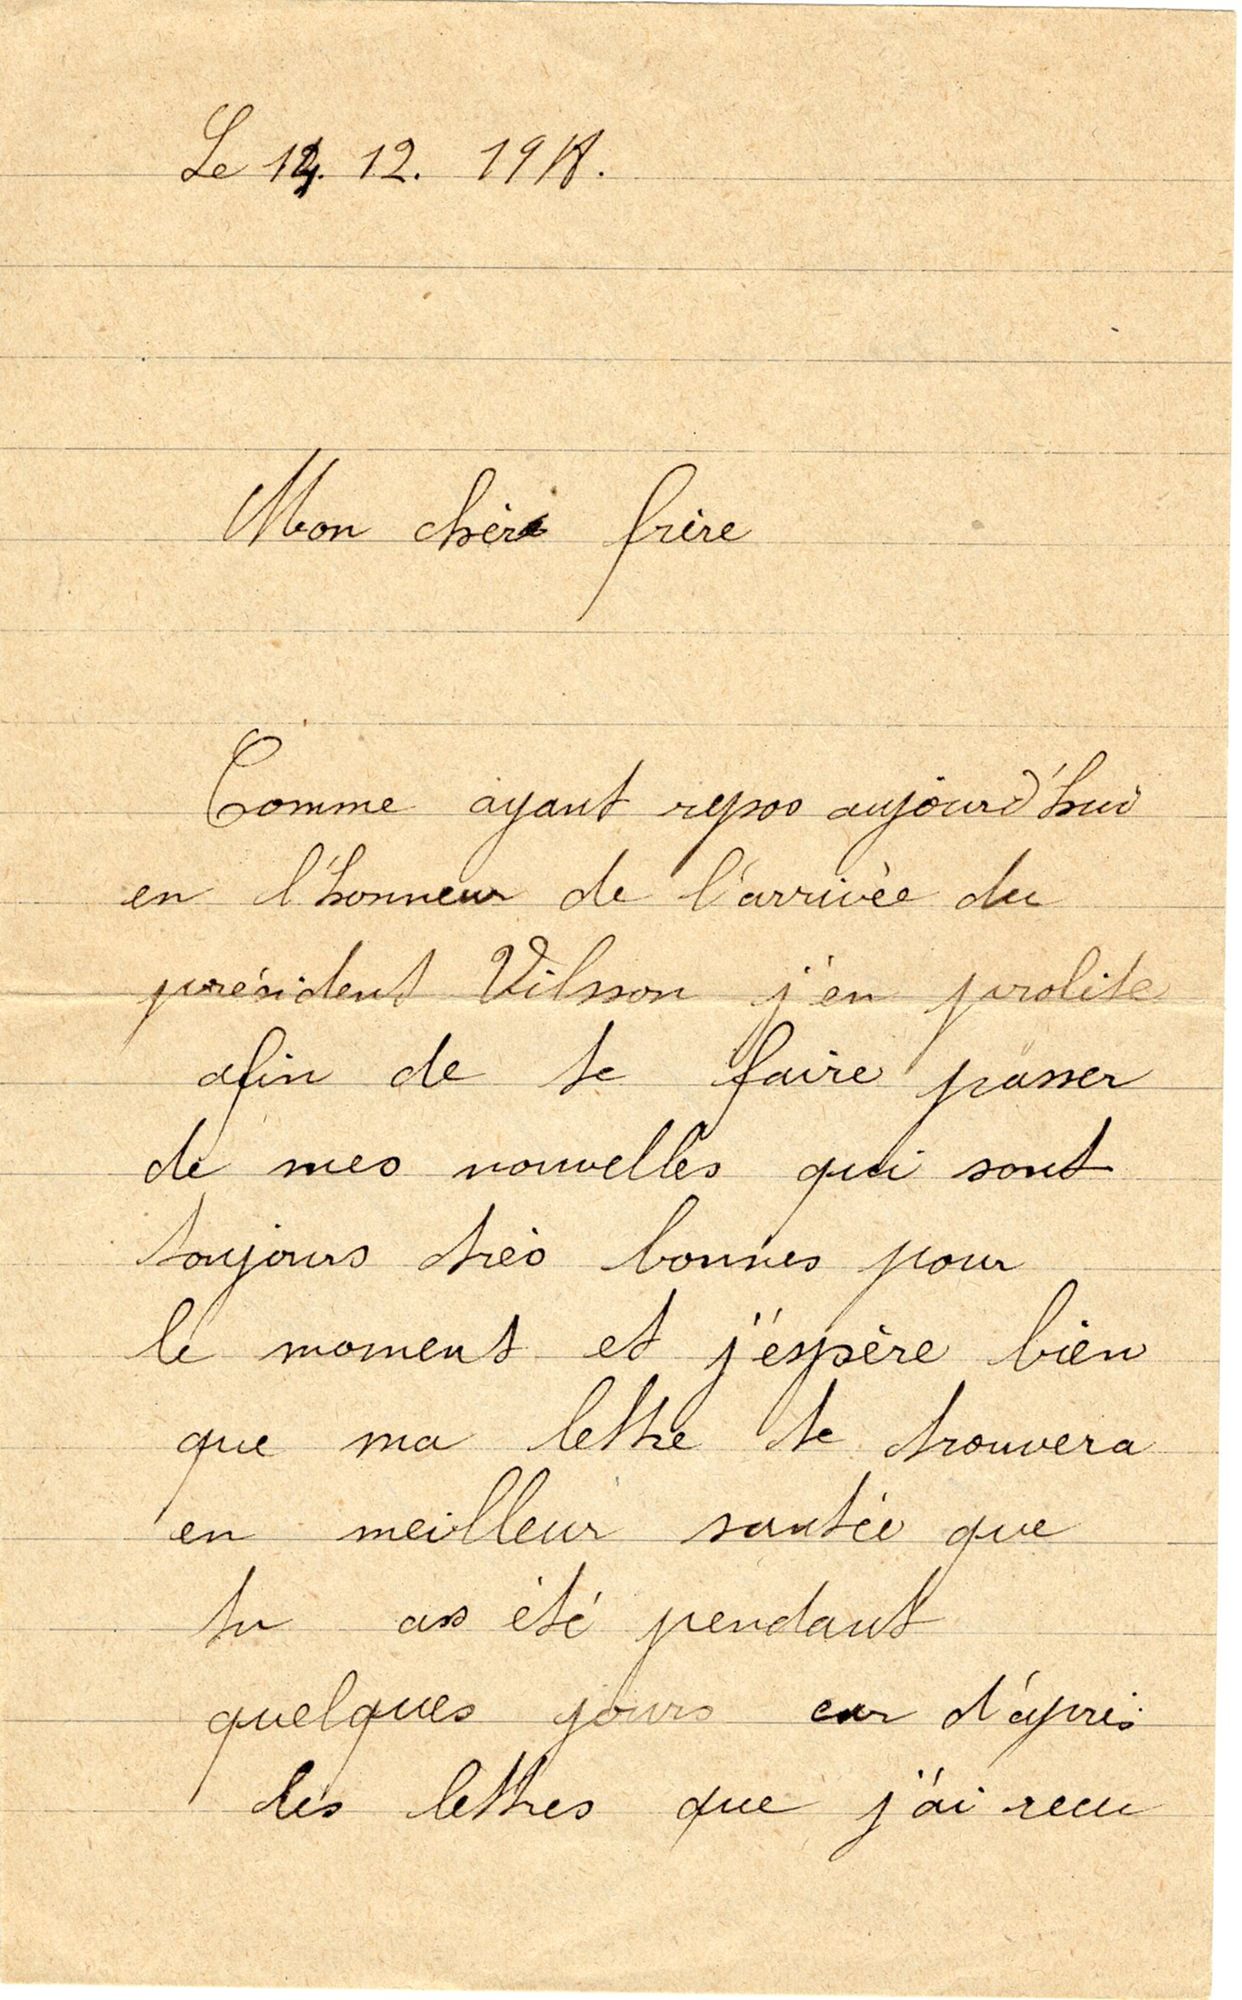 Le 14. 12. 1918.
Mon chèr frère
Comme ayant repos aujourd'hui
en l'honneur de l'arrivée du
président Vilsson j'en profite
afin de te faire passer
de mes nouvelles qui sont
toujours très bonnes pour
le moment et j'éspère bien
que ma lettre te trouvera
en meilleur santée que
tu as été pendant
quelques jours car d'après
les lettres que j'ai recu